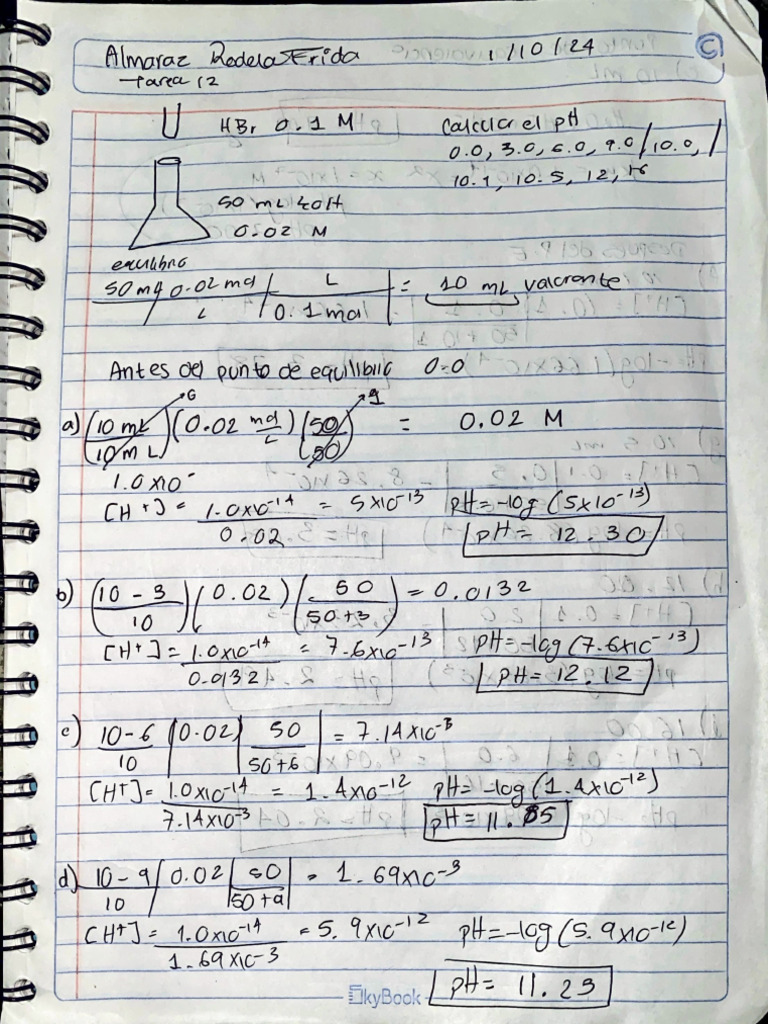 Almaraz Redela Frida 1/10/24
Tarea 12
HBr 0.1 M
Calcular el pH
0.0, 3.0, 6.0, 9.0 / 10.0, /
10.1, 10.5, 12, 16
50 mL KOH
0.02 M
equilibrio
50 mL | 0.02 mol / L | L / 0.1 mol | = 10 mL valorante
Antes del punto de equilibrio 0.0
a) (10 mL / 10 mL) (0.02 mol / L) (50 / 50) = 0.02 M
1.0 x10-
[H+] = 1.0x10-14 / 0.02 = 5x10-13 pH=-log (5x10-13)
pH = 12.30
b) (10 - 3 / 10) (0.02) (50 / 50+3) = 0.0132
[H+] = 1.0x10-14 / 0.0132 = 7.6x10-13 pH=-log(7.6x10-13)
pH = 12.12
c) 10-6 / 10 | 0.02 | 50 / 50+6 | = 7.14x10-3
[H+]= 1.0x10-14 / 7.14x10-3 = 1.4x10-12 pH=-log(1.4x10-12)
pH = 11.85
d) 10-9 / 10 | 0.02 | 50 / 50+9 | = 1.69x10-3
[H+]= 1.0x10-14 / 1.69x10-3 = 5.9x10-12 pH=-log(5.9x10-12)
pH = 11.23
SkyBook